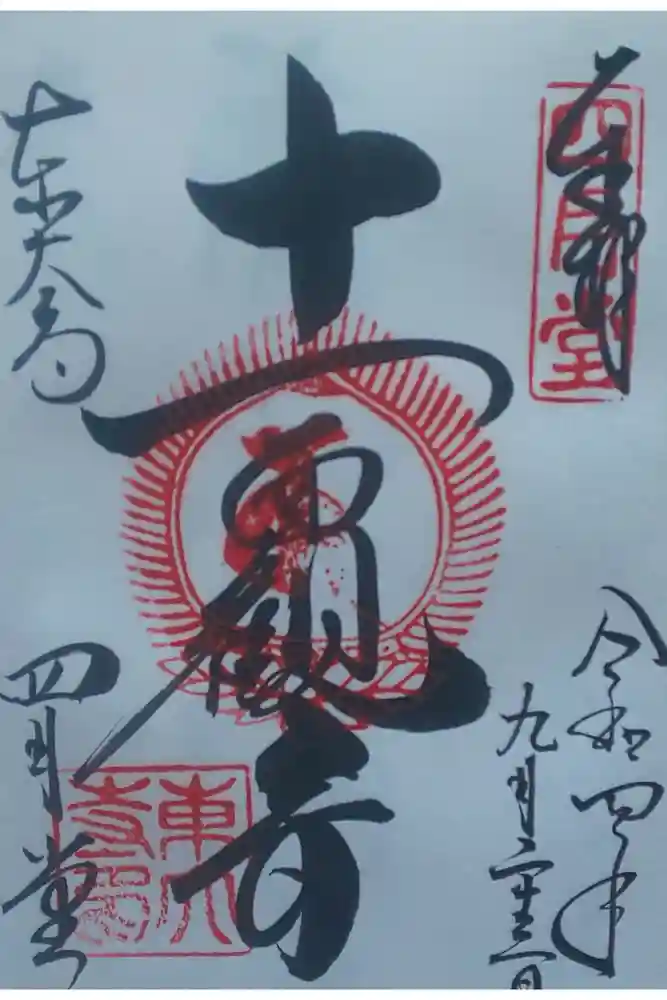 奉拝
四月堂
令和四年
九月二十三日
十一面観音
東大寺
四月堂